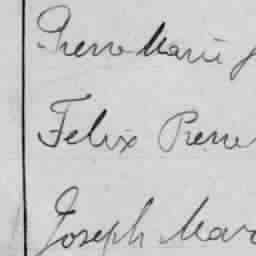 Pierre Marie
Felix Pierre
Joseph Mar